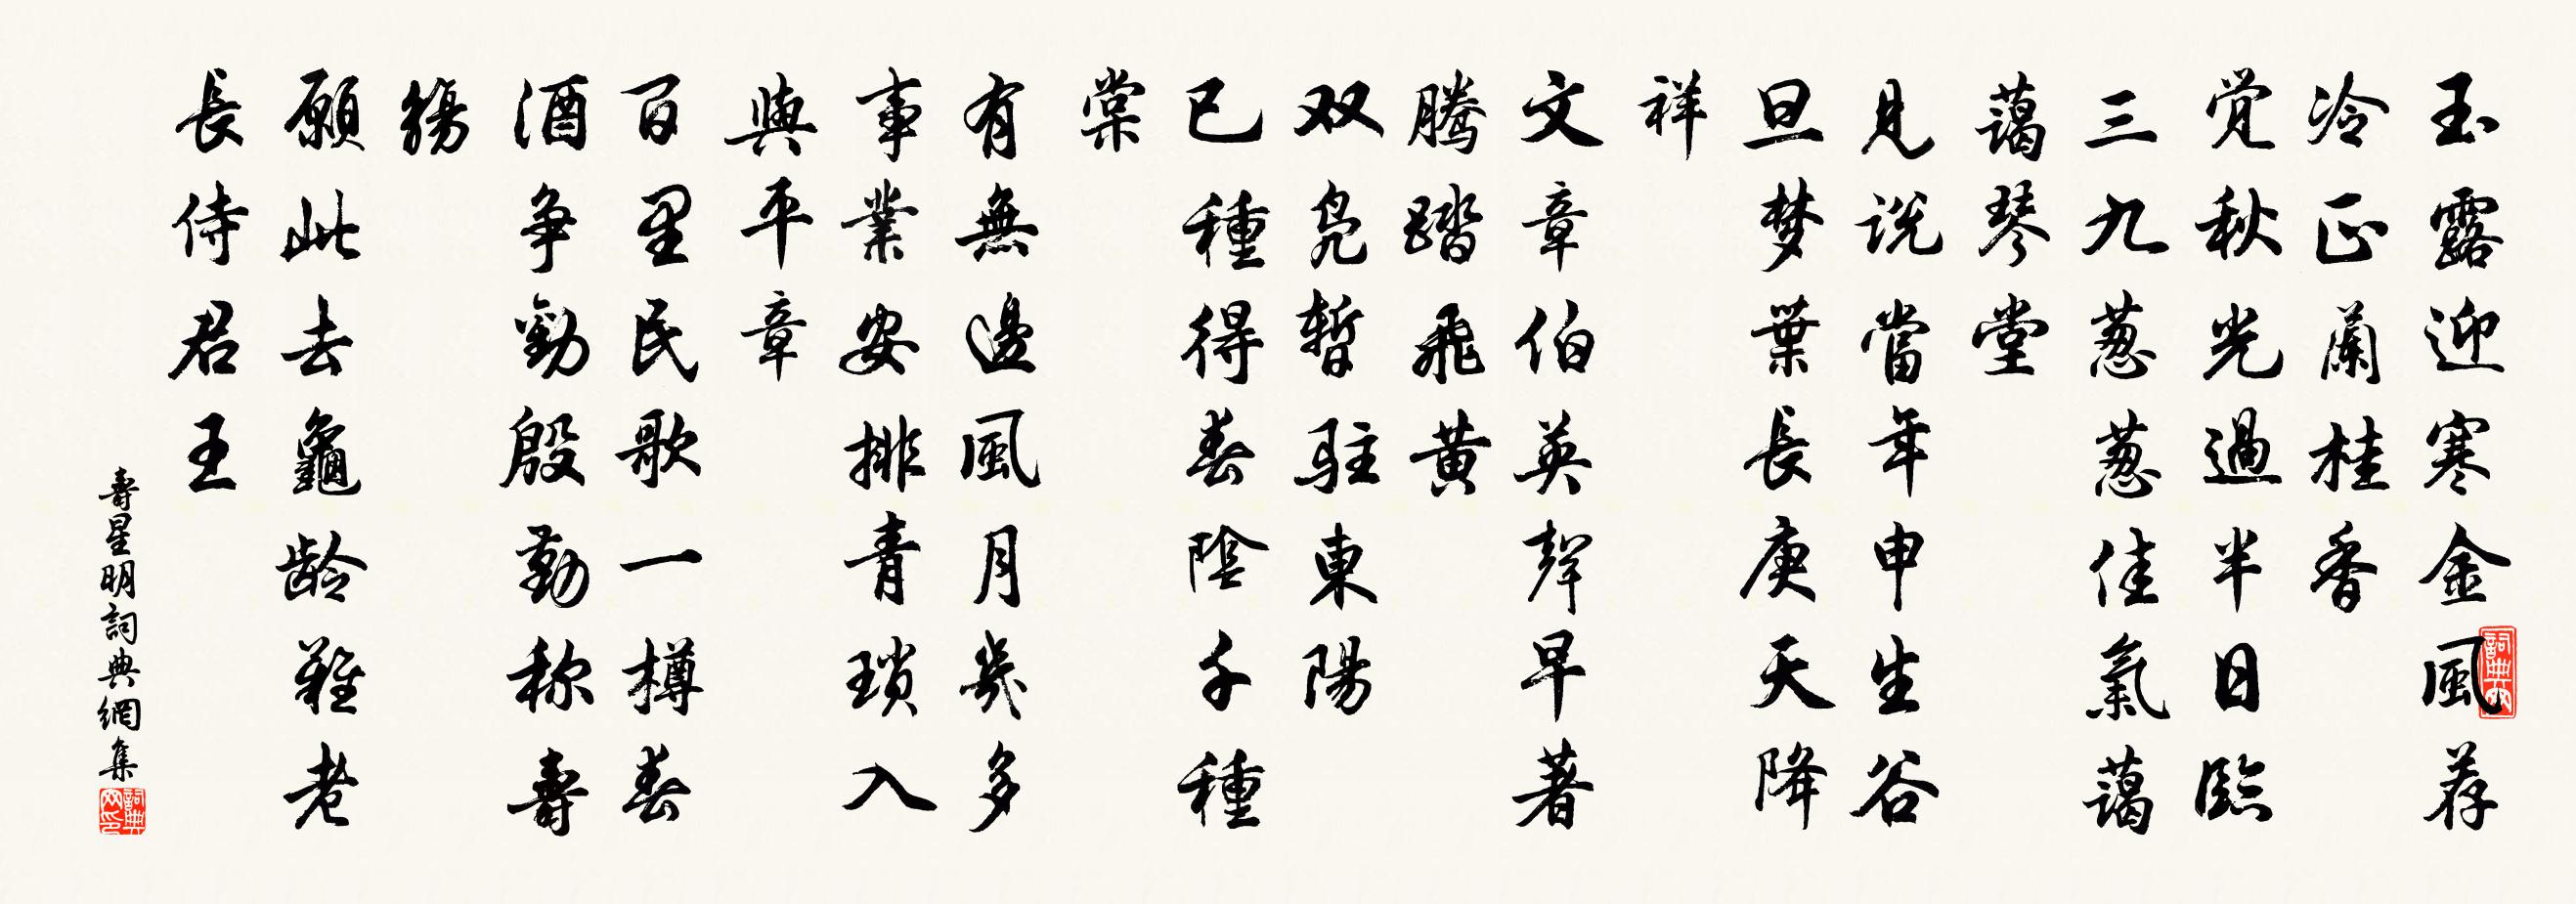 玉露迎寒金風荐
冷正蘭桂香
觉秋光過半日臨
三九葱葱佳氣藹
藹琴堂
見説當年申生谷
旦梦葉長庚天降
祥
文章伯英聲早著
腾踏飛黄
双凫暫駐東陽
已種得春陰千種
棠
有無邊風月幾多
事業安排青瑣入
與平章
百里民歌一樽春
酒争勸殷勤称壽
觴
願此去龜龄難老
長侍君王
壽星明詞典網集
詞典网
詞典网印